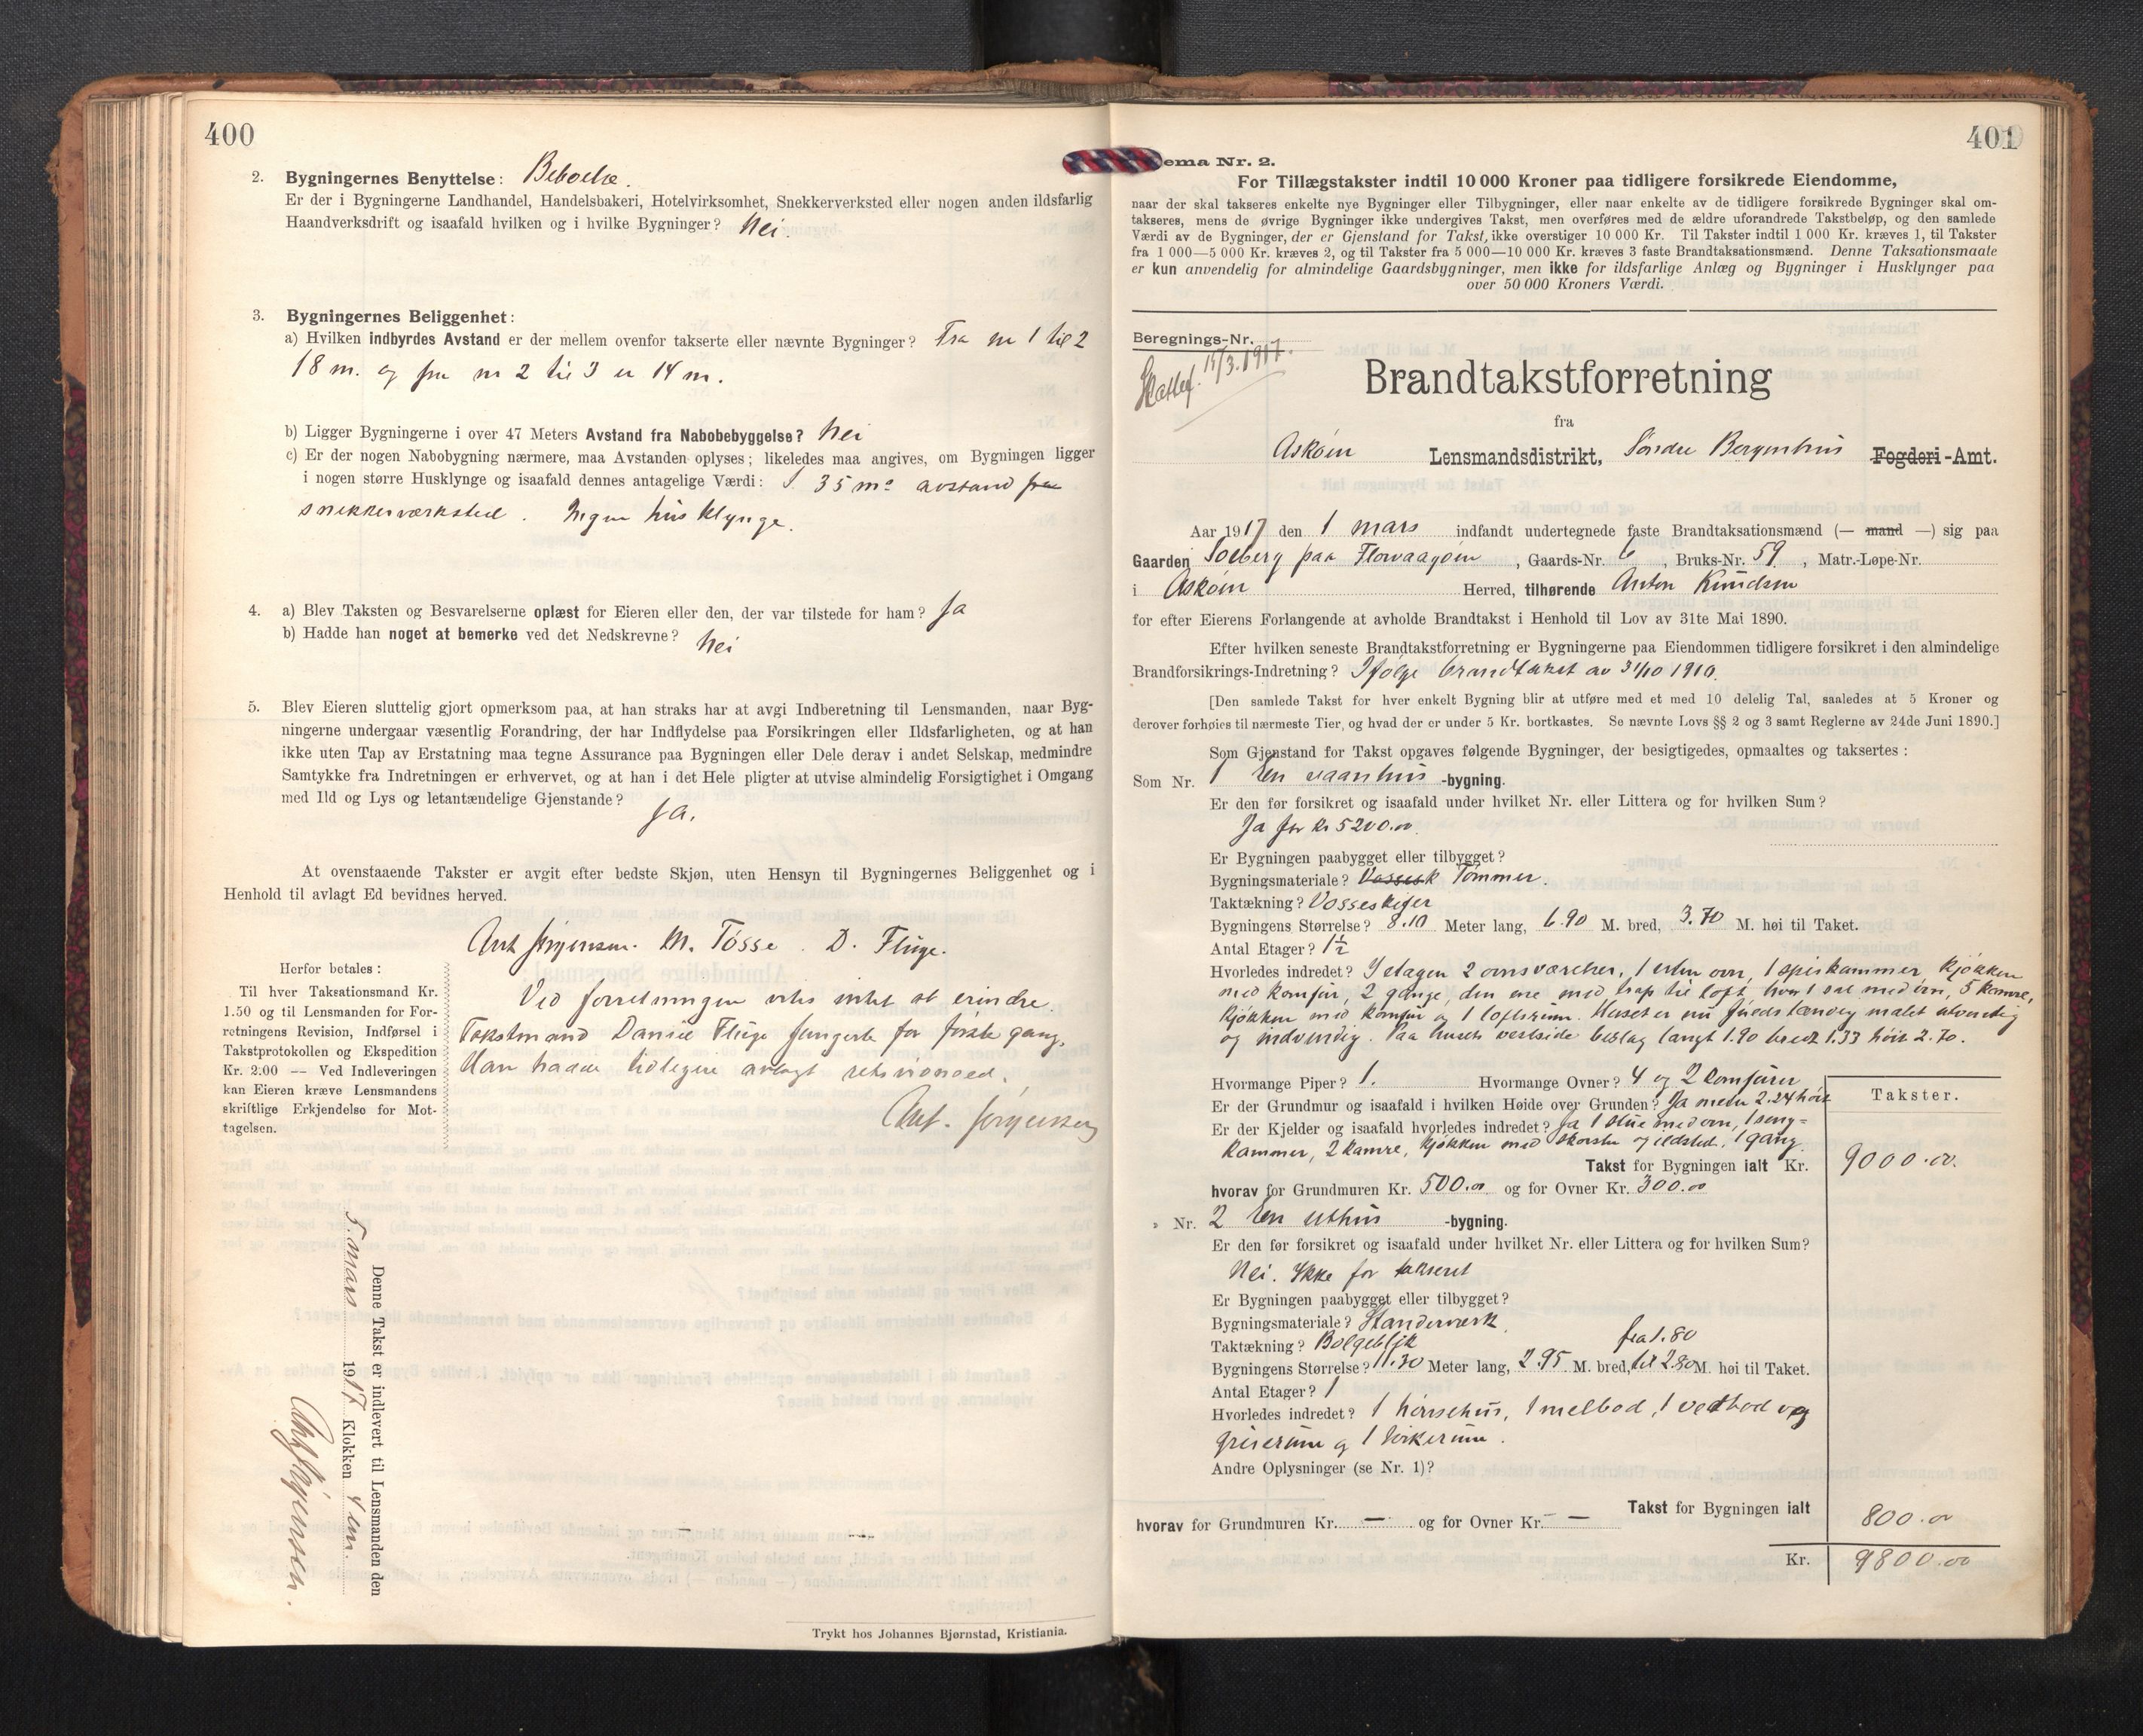 400
2. Bygningernes Benyttelse: Beboelse.
Er der i Bygningerne Landhandel, Handelsbakeri, Hotelvirksomhet, Snekkerverksted eller nogen anden ildsfarlig
Haandverksdrift og isaafald hvilken og i hvilke Bygninger? Nei.
3. Bygningernes Beliggenhet:
a) Hvilken indbyrdes Avstand er der mellem ovenfor takserte eller nævnte Bygninger? Fra nr 1 til 2
18 m. og fra nr 2 til 3 er 14 m.
b) Ligger Bygningerne i over 47 Meters Avstand fra Nabobebyggelse? Nei
c) Er der nogen Nabobygning nærmere, maa Avstanden oplyses; likeledes maa angives, om Bygningen ligger
i nogen større Husklynge og isaafald dennes antagelige Værdi: I 35 ms avstand fra
snekkerværksted. Ingen husklynge.
4. a) Blev Taksten og Besvarelserne oplæst for Eieren eller den, der var tilstede for ham? Ja
b) Hadde han noget at bemerke ved det Nedskrevne? Nei
5. Blev Eieren sluttelig gjort opmerksom paa, at han straks har at avgi Indberetning til Lensmanden, naar Byg-
ningerne undergaar væsentlig Forandring, der har Indflydelse paa Forsikringen eller Ildsfarligheten, og at han
ikke uten Tap av Erstatning maa tegne Assurance paa Bygningen eller Dele derav i andet Selskap, medmindre
Samtykke fra Indretningen er erhvervet, og at han i det Hele pligter at utvise almindelig Forsigtighet i Omgang
med Ild og Lys og letantændelige Gjenstande?
Ja.
At ovenstaaende Takster er avgit efter bedste Skjøn, uten Hensyn til Bygningernes Beliggenhet og i
Henhold til avlagt Ed bevidnes herved.
Ant Jørgensen. M. Tösse. D. Fluge.
Herfor betales:
Til hver Taksationsmand Kr.
1.50 og til Lensmanden for For-
retningens Revision, Indførsel i
Takstprotokollen og Ekspedition
Kr. 2.00 — Ved Indleveringen
kan Eieren kræve Lensmandens
skriftlige Erkjendelse for Mot-
tagelsen.
Ved forretningen vites intet at erindre.
Takstmand Daniel Fluge fungerte for første gang.
Han hadde tidligere avlagt
Ant. Jørgensen
Denne Takst er indlevert til Lensmanden den
5 mars 1917 Klokken 4 em.
Ant Jørgensen.
Trykt hos Johannes Bjørnstad, Kristiania.
401
ema Nr. 2.
For Tillægstakster indtil 10 000 Kroner paa tidligere forsikrede Eiendomme,
naar der skal takseres enkelte nye Bygninger eller Tilbygninger, eller naar enkelte av de tidligere forsikrede Bygninger skal om-
takseres, mens de øvrige Bygninger ikke undergives Takst, men overføres med de ældre uforandrede Takstbeløp, og den samlede
Værdi av de Bygninger, der er Gjenstand for Takst, ikke overstiger 10 000 Kr. Til Takster indtil 1 000 Kr. kræves 1, til Takster
fra 1 000—5 000 Kr. kræves 2, og til Takster fra 5 000—10 000 Kr. kræves 3 faste Brandtaksationsmænd. Denne Taksationsmaate
er kun anvendelig for almindelige Gaardsbygninger, men ikke for ildsfarlige Anlæg og Bygninger i Husklynger paa
over 50 000 Kroners Værdi.
Beregnings-Nr.
15/3.1917.
Brandtakstforretning
fra
Askøin Lensmandsdistrikt, Søndre Bergenhus Fogderi-Amt.
Aar 1917 den 1 mars indfandt undertegnede faste Brandtaksationsmænd (— mand —) sig paa
Gaarden Solberg paa Florvaagøen, Gaards-Nr. 6, Bruks-Nr. 59, Matr.-Løpe-Nr.
i Askøin Herred, tilhørende Anton Knudsen
for efter Eierens Forlangende at avholde Brandtakst i Henhold til Lov av 31te Mai 1890.
Efter hvilken seneste Brandtakstforretning er Bygningerne paa Eiendommen tidligere forsikret i den almindelige
Brandforsikrings-Indretning? Ifølge brandtakst av 31/10 1910.
[Den samlede Takst for hver enkelt Bygning blir at utføre med et med 10 delelig Tal, saaledes at 5 Kroner og
derover forhøies til nærmeste Tier, og hvad der er under 5 Kr. bortkastes. Se nævnte Lovs §§ 2 og 3 samt Reglerne av 24de Juni 1890.]
Som Gjenstand for Takst opgaves følgende Bygninger, der besigtigedes, opmaaltes og taksertes:
Som Nr. 1 En vaanhus -bygning.
Er den før forsikret og isaafald under hvilket Nr. eller Littera og for hvilken Sum?
Ja for kr 5200.00
Er Bygningen paabygget eller tilbygget?
Bygningsmateriale? Vossesk Tömmer.
Taktækning? Vosseskifer
Bygningens Størrelse? 8.10 Meter lang, 6.90 M. bred, 3.70 M. høi til Taket.
Antal Etager? 1½
Hvorledes indredet? I etagen 2 ovnsværelser, 1 uten ovn, 1 spiskammer, kjøkken
med komfur, 2 gange, den ene med trap til loft, hvor 1 sal med ovn, 5 kamre,
kjøkken med komfur og 1 loftsrum. Huset er nu fuldstændig malet utvendig
og indvendig. Paa husets vestside bislag langt 1.90 bredt 1.33 høit 2.70.
Hvormange Piper? 1. Hvormange Ovner? 4 og 2 komfurer
Er der Grundmur og isaafald i hvilken Høide over Grunden? Ja 2.24 høit
Er der Kjelder og isaafald hvorledes indredet? Ja 1 stue med ovn, 1 seng-
kammer, 2 kamre, kjøkken med skorsten og ildsted, 1 gang.
Takster.
Takst for Bygningen ialt Kr. 9000.00.
hvorav for Grundmuren Kr. 500.00 og for Ovner Kr. 300.00
» Nr. 2 En uthus -bygning.
Er den før forsikret og isaafald under hvilket Nr. eller Littera og for hvilken Sum?
Nei. Ikke før takseret
Er Bygningen paabygget eller tilbygget?
Bygningsmateriale? Standerværk
Taktækning? Bølgeblik fra 1.80
Bygningens Størrelse? 11.30 Meter lang, 2.95 M. bred, til 2.80 M. høi til Taket.
Antal Etager? 1
Hvorledes indredet? 1 hønsehus, 1 melbod, 1 vedbod og
griserum og 1 .
Andre Oplysninger (se Nr. 1)?
Takst for Bygningen ialt 800.00
hvorav for Grundmuren Kr. — og for Ovner Kr. —
Kr. 9800.00